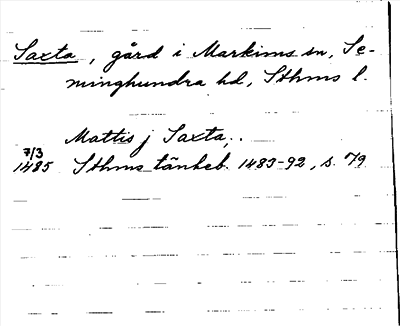 Saxta, gård i Markims sn, Se-
minghundra hd, Sthms l.
Mattis j Saxta,.
7/3
1485 Sthms tänkeb. 1483-92, s. 79